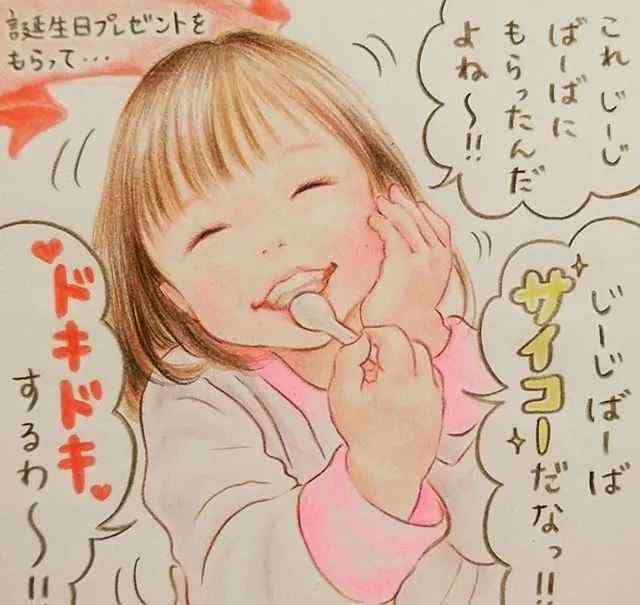 誕生日プレゼントを
もらって・・・
これ じーじ
ばーばに
もらったんだ
よね〜!!
じーじばーば
サイコーだなっ!!
ドキドキ
するわ〜!!